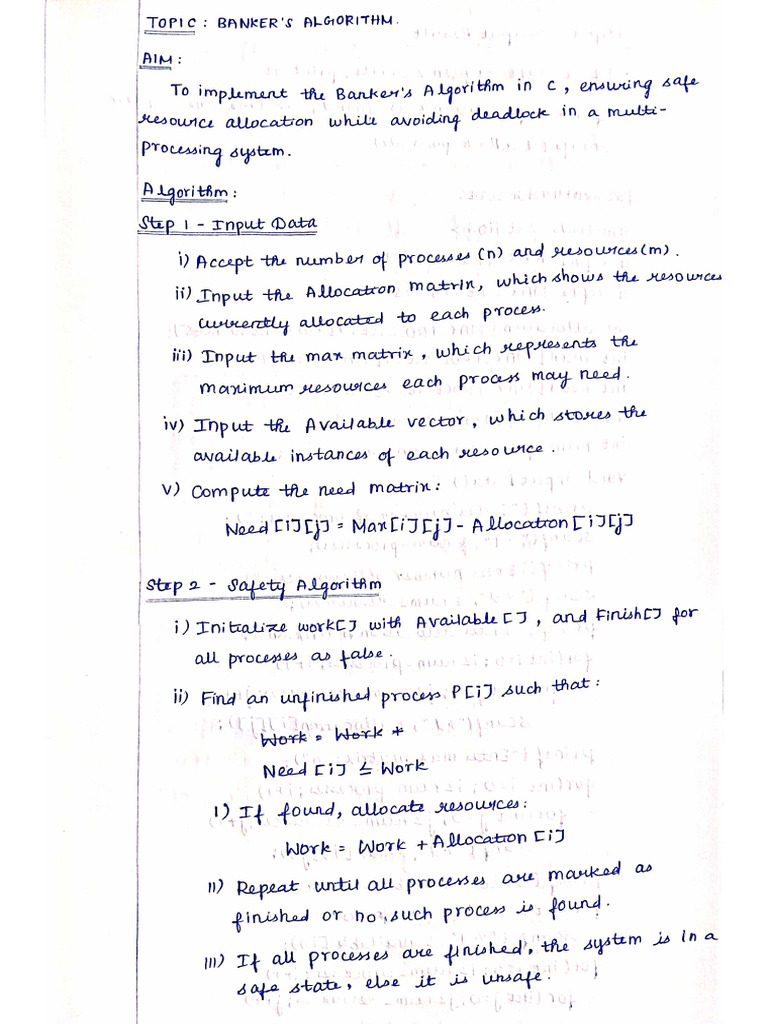 TOPIC : BANKER'S ALGORITHM.
AIM :
To implement the Banker's Algorithm in C, ensuring safe
resource allocation while avoiding deadlock in a multi-
processing system.
Algorithm :
Step 1 - Input Data
i) Accept the number of processes (n) and resources (m).
ii) Input the Allocation matrix, which shows the resources
currently allocated to each process.
iii) Input the max matrix, which represents the
maximum resources each process may need.
iv) Input the Available vector, which stores the
available instances of each resource.
v) Compute the need matrix :
Need [i][j] = Max[i][j] - Allocation [i][j]
Step 2 - Safety Algorithm
i) Initialize work[] with Available [], and Finish[] for
all processes as false.
ii) Find an unfinished process P[i] such that :
Work = Work *
Need [i] ≤ Work
I) If found, allocate resources :
Work = Work + Allocation [i]
II) Repeat until all processes are marked as
finished or no such process is found.
III) If all processes are finished, the system is in a
safe state, else it is unsafe.